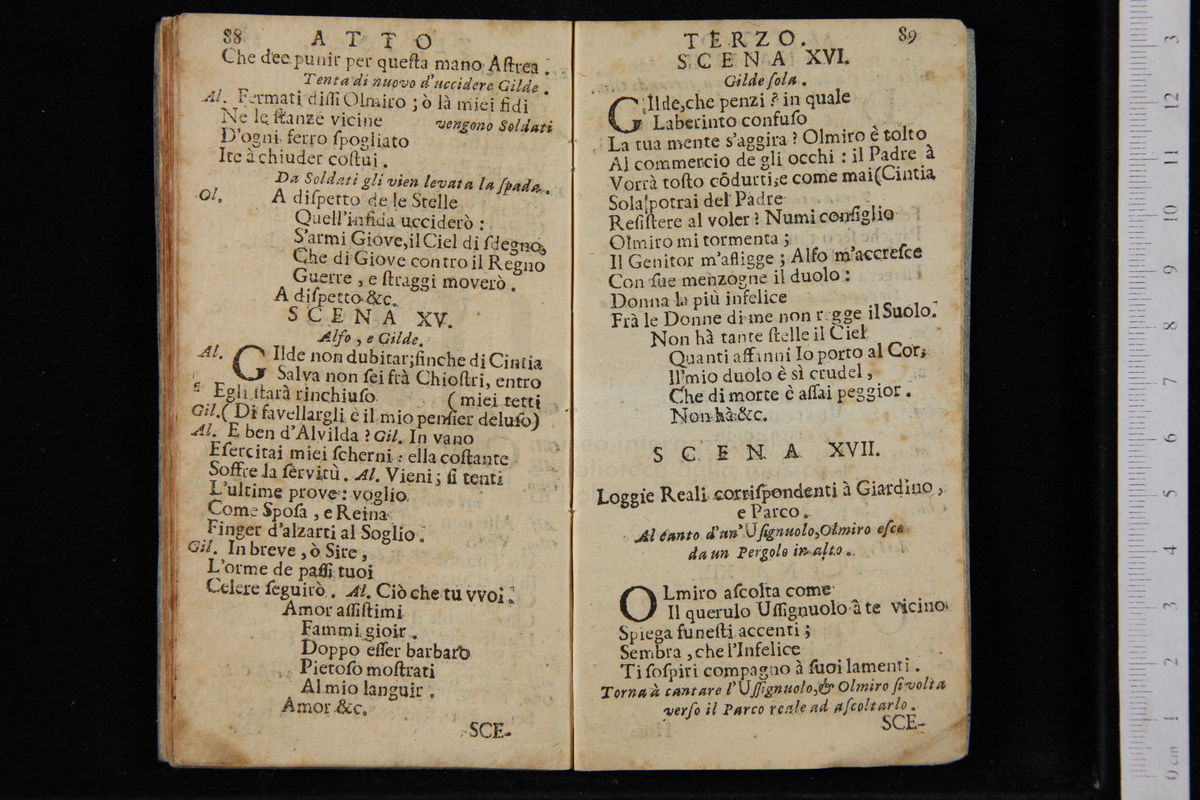 88 ATTO
Che dee punir per questa mano Astrea.
Tenta di nuovo d'uccidere Gilde.
Al. Fermati dissi Olmiro; ò là miei fidi
Ne le stanze vicine vengono Soldati
D'ogni ferro spogliato
Ite à chiuder costui.
Da Soldati gli vien levata la spada.
Ol. A dispetto de le Stelle
Quell'infida ucciderò:
S'armi Giove, il Ciel di sdegno,
Che di Giove contro il Regno
Guerre, e straggi moverò.
A dispetto &c.
SCENA XV.
Alfo, e Gilde.
Al. Gilde non dubitar; finche di Cintia
Salva non sei frà Chiostri, entro
Egli starà rinchiuso (miei tetti
Gil. (Di favellargli è il mio pensier deluso)
Al. E ben d'Alvilda? Gil. In vano
Esercitai miei scherni: ella costante
Soffre la servitù. Al. Vieni; si tenti
L'ultime prove: voglio
Come Sposa, e Reina
Finger d'alzarti al Soglio.
Gil. In breve, ò Sire,
L'orme de passi tuoi
Celere seguirò. Al. Ciò che tu vvoi.
Amor assistimi
Fammi gioir.
Doppo esser barbaro
Pietoso mostrati
Al mio languir.
Amor &c.
SCE-
TERZO. 89
SCENA XVI.
Gilde sola.
Gilde, che penzi? in quale
Laberinto confuso
La tua mente s'aggira? Olmiro è tolto
Al commercio de gli occhi: il Padre à
Vorrà tosto cõdurti; e come mai (Cintia
Sola potrai del Padre
Resistere al voler? Numi consiglio
Olmiro mi tormenta;
Il Genitor m'afligge; Alfo m'accresce
Con sue menzogne il duolo:
Donna la più infelice
Frà le Donne di me non regge il Suolo.
Non hà tante stelle il Ciel
Quanti affanni Io porto al Cor;
Il mio duolo è sì crudel,
Che di morte è assai peggior.
Non hà &c.
SCENA XVII.
Loggie Reali corrispondenti à Giardino,
e Parco.
Al canto d'un' Ussignuolo, Olmiro esce
da un Pergolo in alto.
Olmiro ascolta come
Il querulo Ussignuolo à te vicino
Spiega funesti accenti;
Sembra, che l'Infelice
Ti sospiri compagno à suoi lamenti.
Torna à cantare l'Ussignuolo, & Olmiro si volta
verso il Parco reale ad ascoltarlo.
SCE-